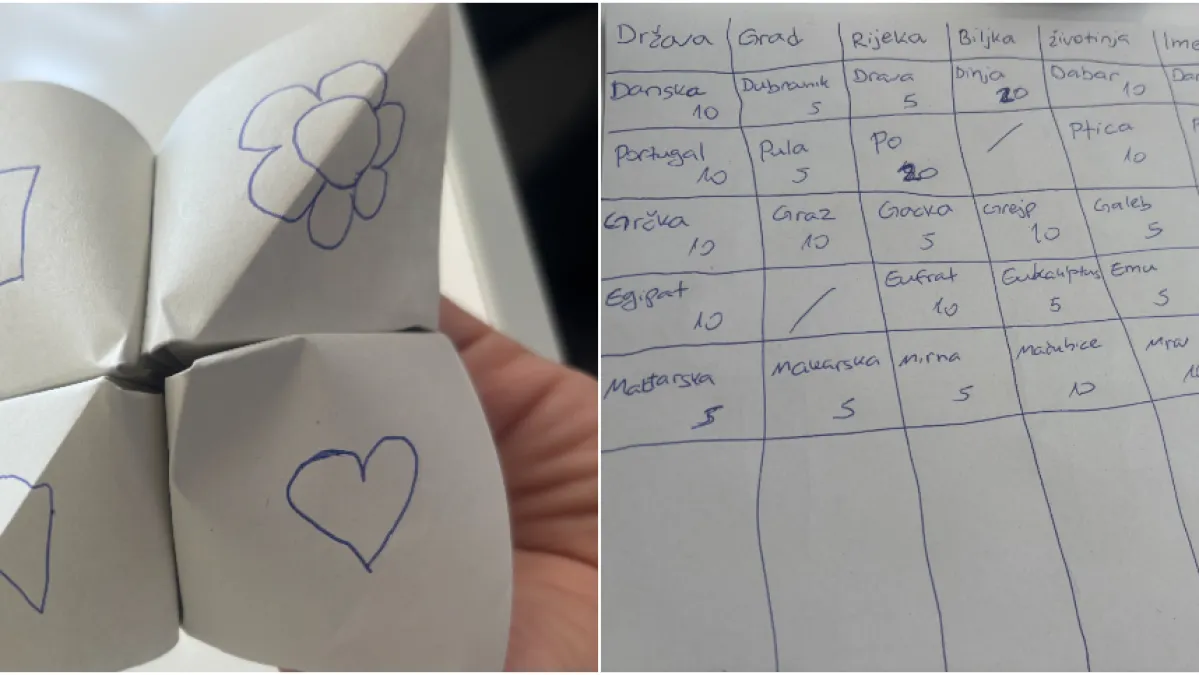 Država Grad Rijeka Biljka životinja Ime
Danska Dubrovnik Drava Dinja Dabar Da
10 5 5 20 10
Portugal Pula Po / Ptica P
10 5 20 10
Grčka Graz Gacka Grejp Galeb
10 10 5 10 5
Egipat / Eufrat Eukaliptus Emu
10 10 5 5
Mađarska Makarska Mirna Maćuhice Mrav
5 5 5 10 10